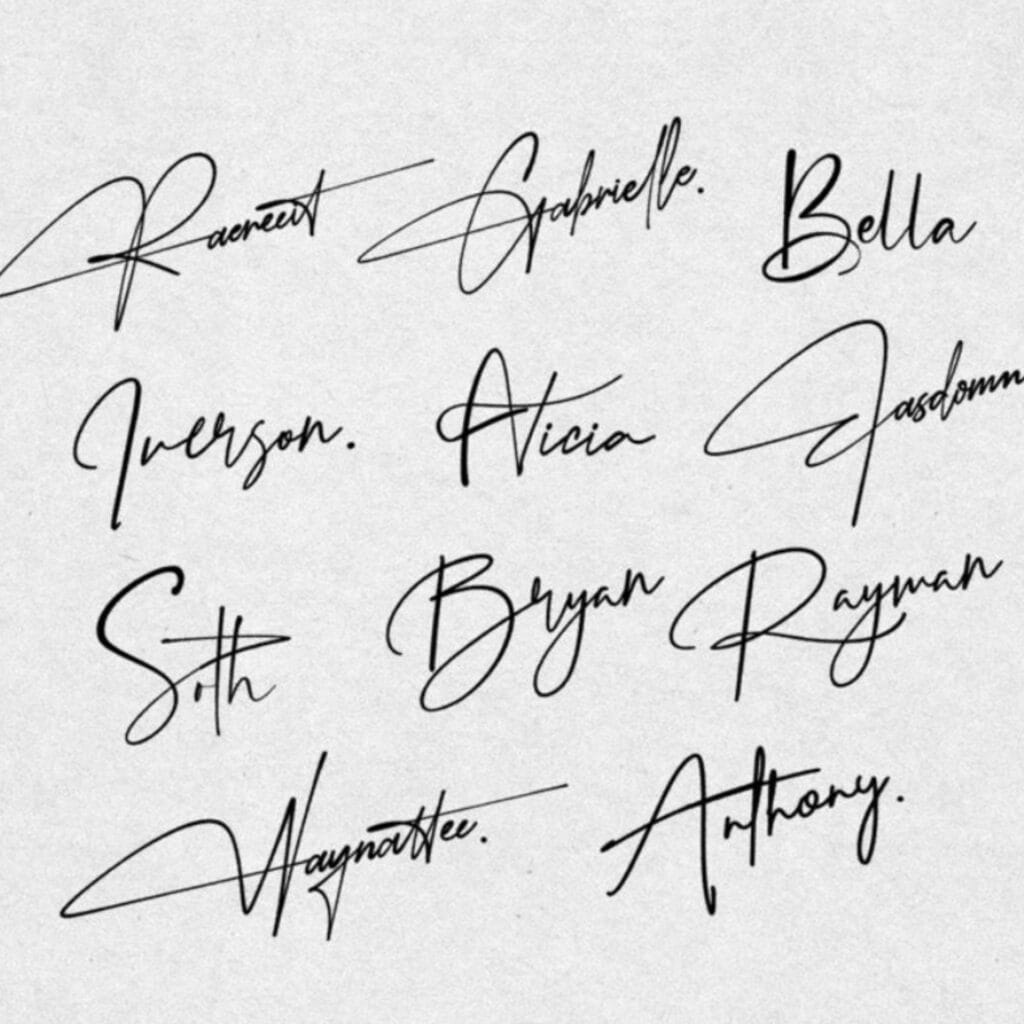 Raereeit Gabrielle. Bella
Iverson. Alicia Jasdomn
Soth Bryan Rayman
Waynattee. Anthony.